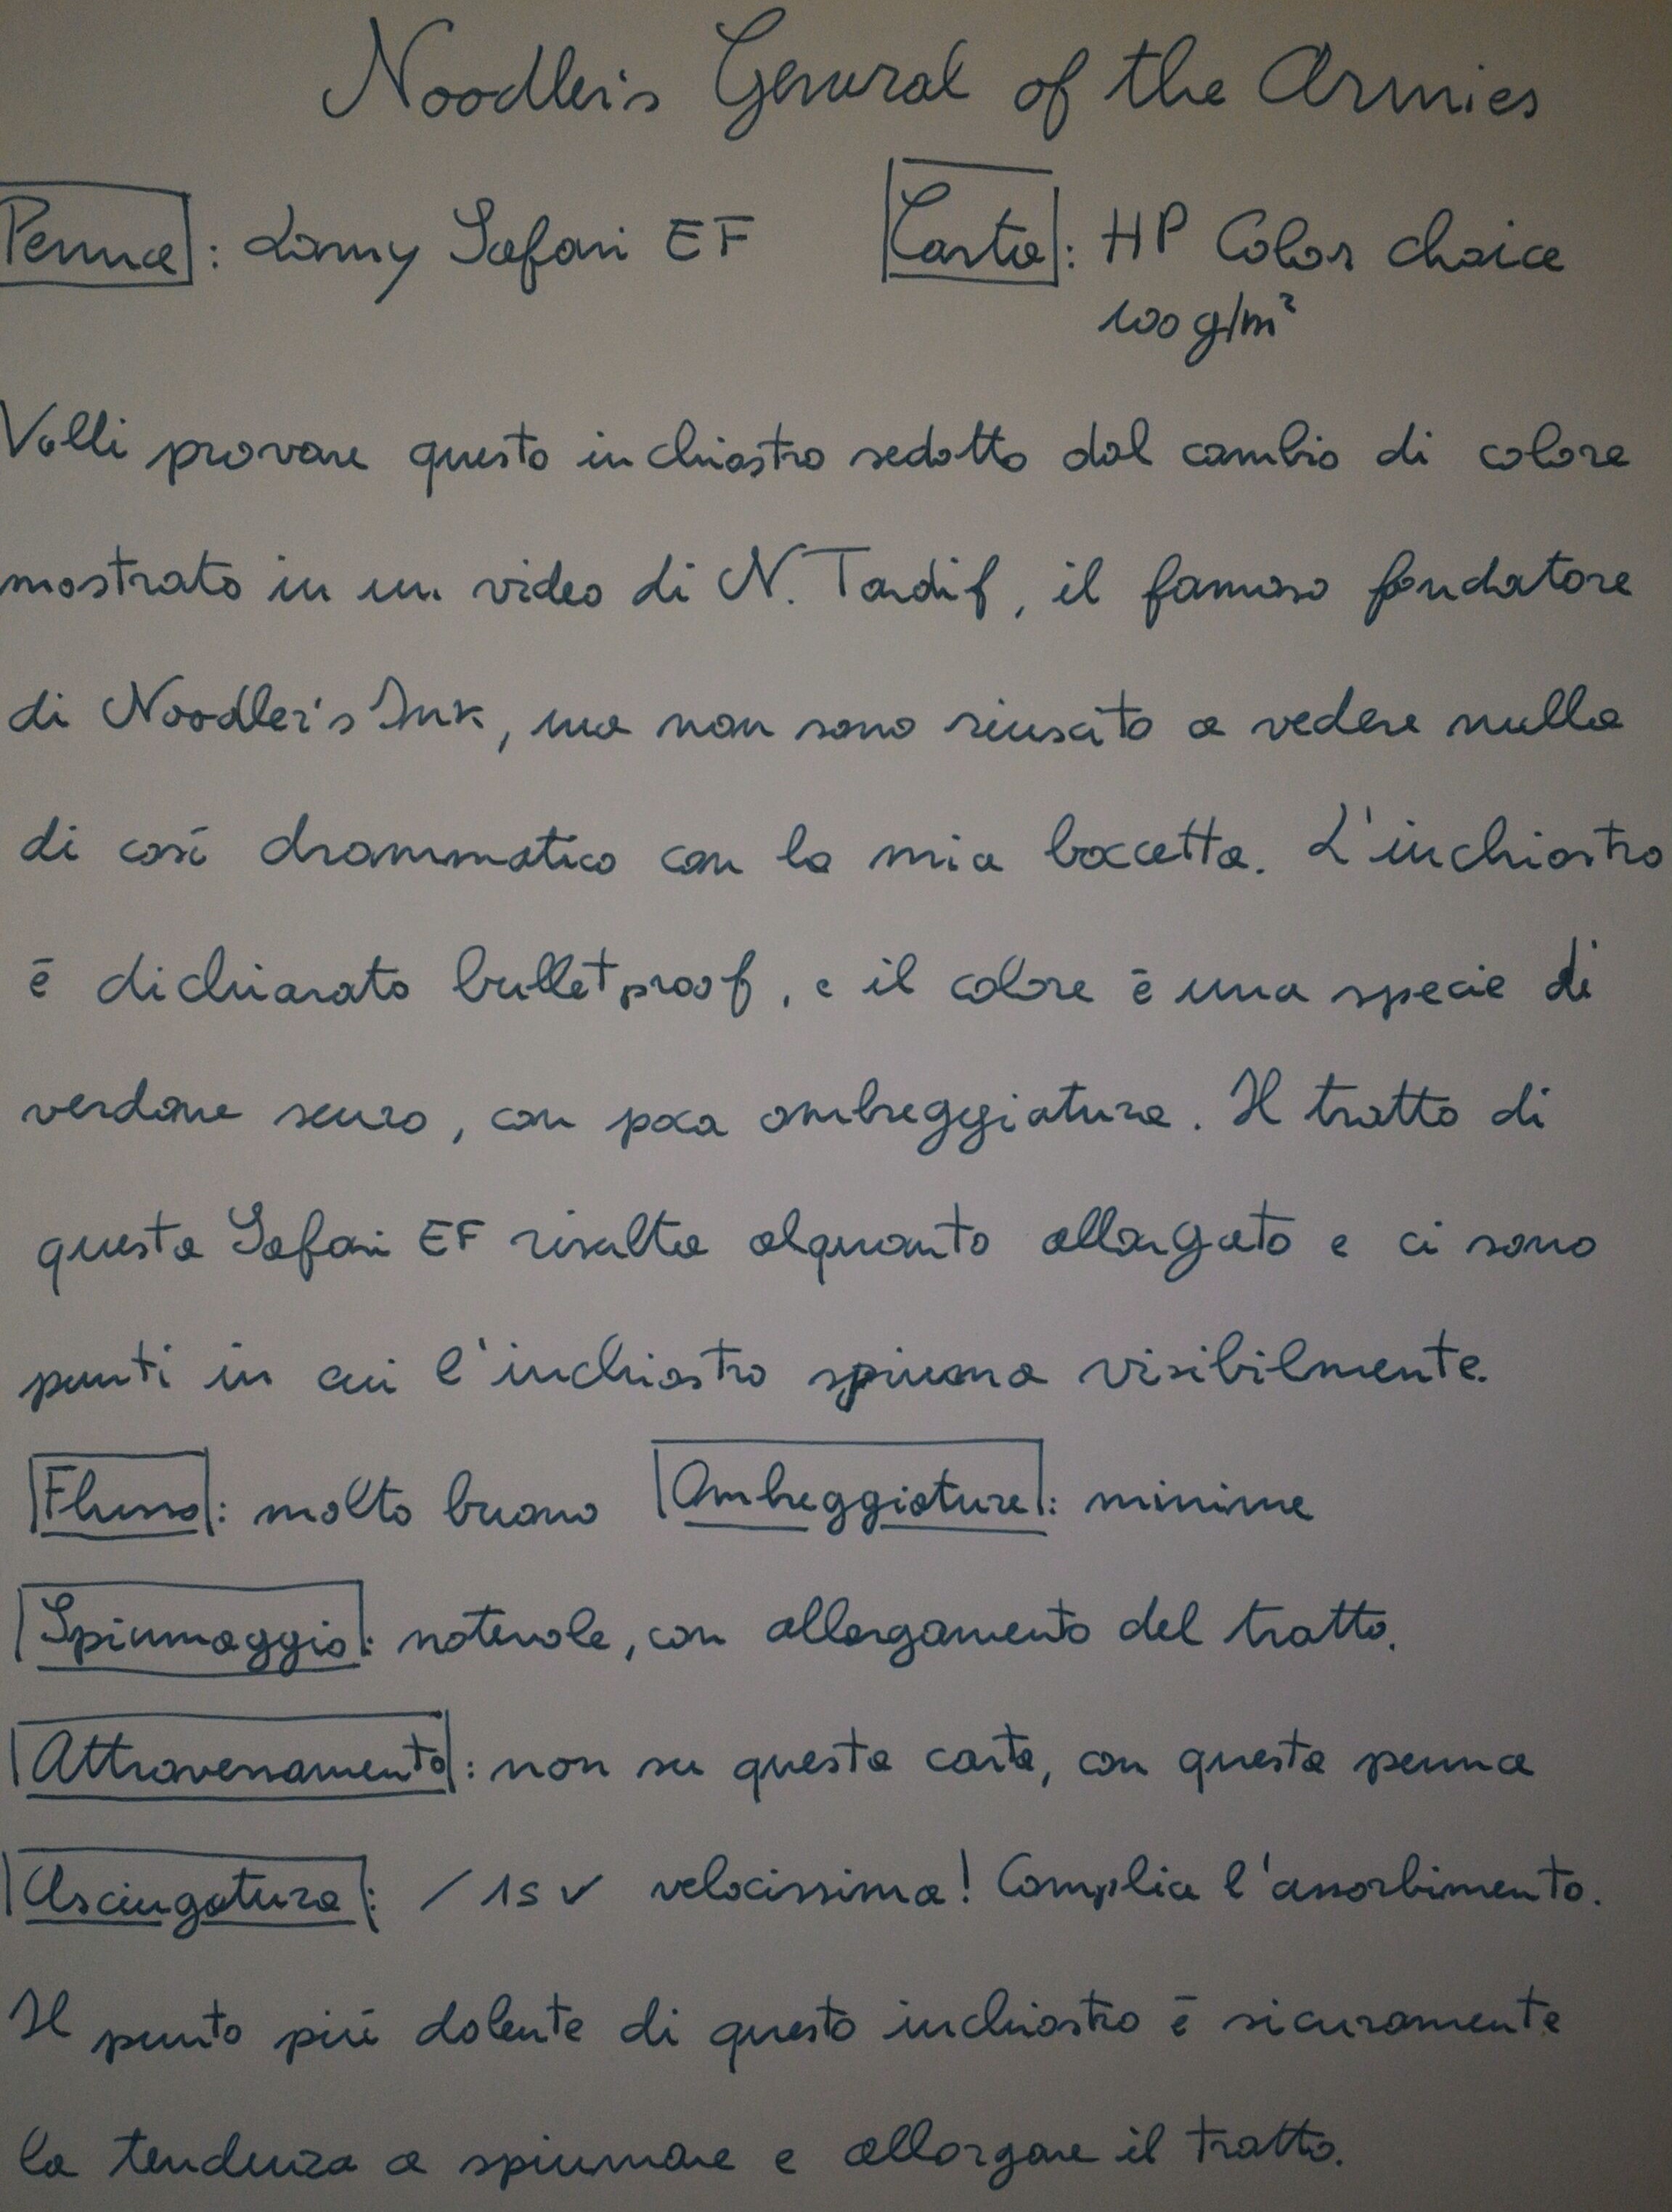 Noodler's General of the Armies
Penna: Lamy Safari EF Carta: HP Color choice
100 g/m²
Volli provare questo inchiostro sedotto dal cambio di colore
mostrato in un video di N. Tardif, il famoso fondatore
di Noodler's Ink, ma non sono riuscito a vedere nulla
di così drammatico con la mia boccetta. L'inchiostro
è dichiarato bulletproof, e il colore è una specie di
verdone scuro, con poca ombreggiatura. Il tratto di
questa Safari EF risulta alquanto allargato e ci sono
punti in cui l'inchiostro spiuma visibilmente.
Flusso: molto buono Ombreggiature: minime
Spiumaggio: notevole, con allargamento del tratto.
Attraversamento: non su questa carta, con questa penna
Asciugatura: / 1s √ velocissima! Complice l'assorbimento.
Il punto più dolente di questo inchiostro è sicuramente
la tendenza a spiumare e allargare il tratto.